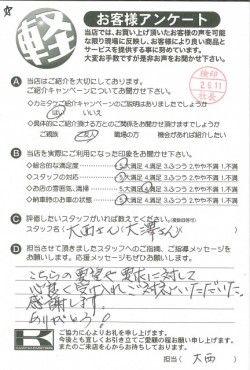 軽
お客様アンケート
当店では、お買い上げ頂いたお客様の声を可能
な限り現場に反映し、お客様により良い商品と
サービスを提供する事に努めています。
大変お手数ですが是非お声をお聞かせ下さい。
A 当店はご紹介を大切にしてあります。
ご紹介キャンペーンについてお聞かせ下さい。
検印
2.6.11
社長
◇カミタケご紹介キャンペーンのご説明はありましたでしょうか
はい いいえ
◇具体的にご紹介頂ける方とのご関係をお聞かせ頂けますでしょうか
ご親族 ご友人 職場の方 機会があれば紹介したい
B 当店を実際にご利用になった印象をお聞かせ下さい。
◇総合的な満足度 5.大満足 4.満足 3.ふつう 2.やや不満 1.不満
◇スタッフの対応 5.大満足 4.満足 3.ふつう 2.やや不満 1.不満
◇お店の雰囲気、清掃 5.大満足 4.満足 3.ふつう 2.やや不満 1.不満
◇納車時のお車の状態 5.大満足 4.満足 3.ふつう 2.やや不満 1.不満
C 評価したいスタッフがいれば教えてください。(複数回答可)
スタッフ名 ( 大西さん(大澤さん) )
D 担当させて頂きましたスタッフへのご指摘、ご指導メッセージを
お願いします。応援メッセージもぜひお願いします。
こちらの要望や要求に対して
心良く受け入れ、ご対応いただいた。
感謝します。
ありがとう!
K
ご協力に心よりお礼を申し上げます。
今後とも宜しくお引き立てご愛顧の程お願い申し上げます。
またのご来店を心からお待ちしております。
担当( 大西 )